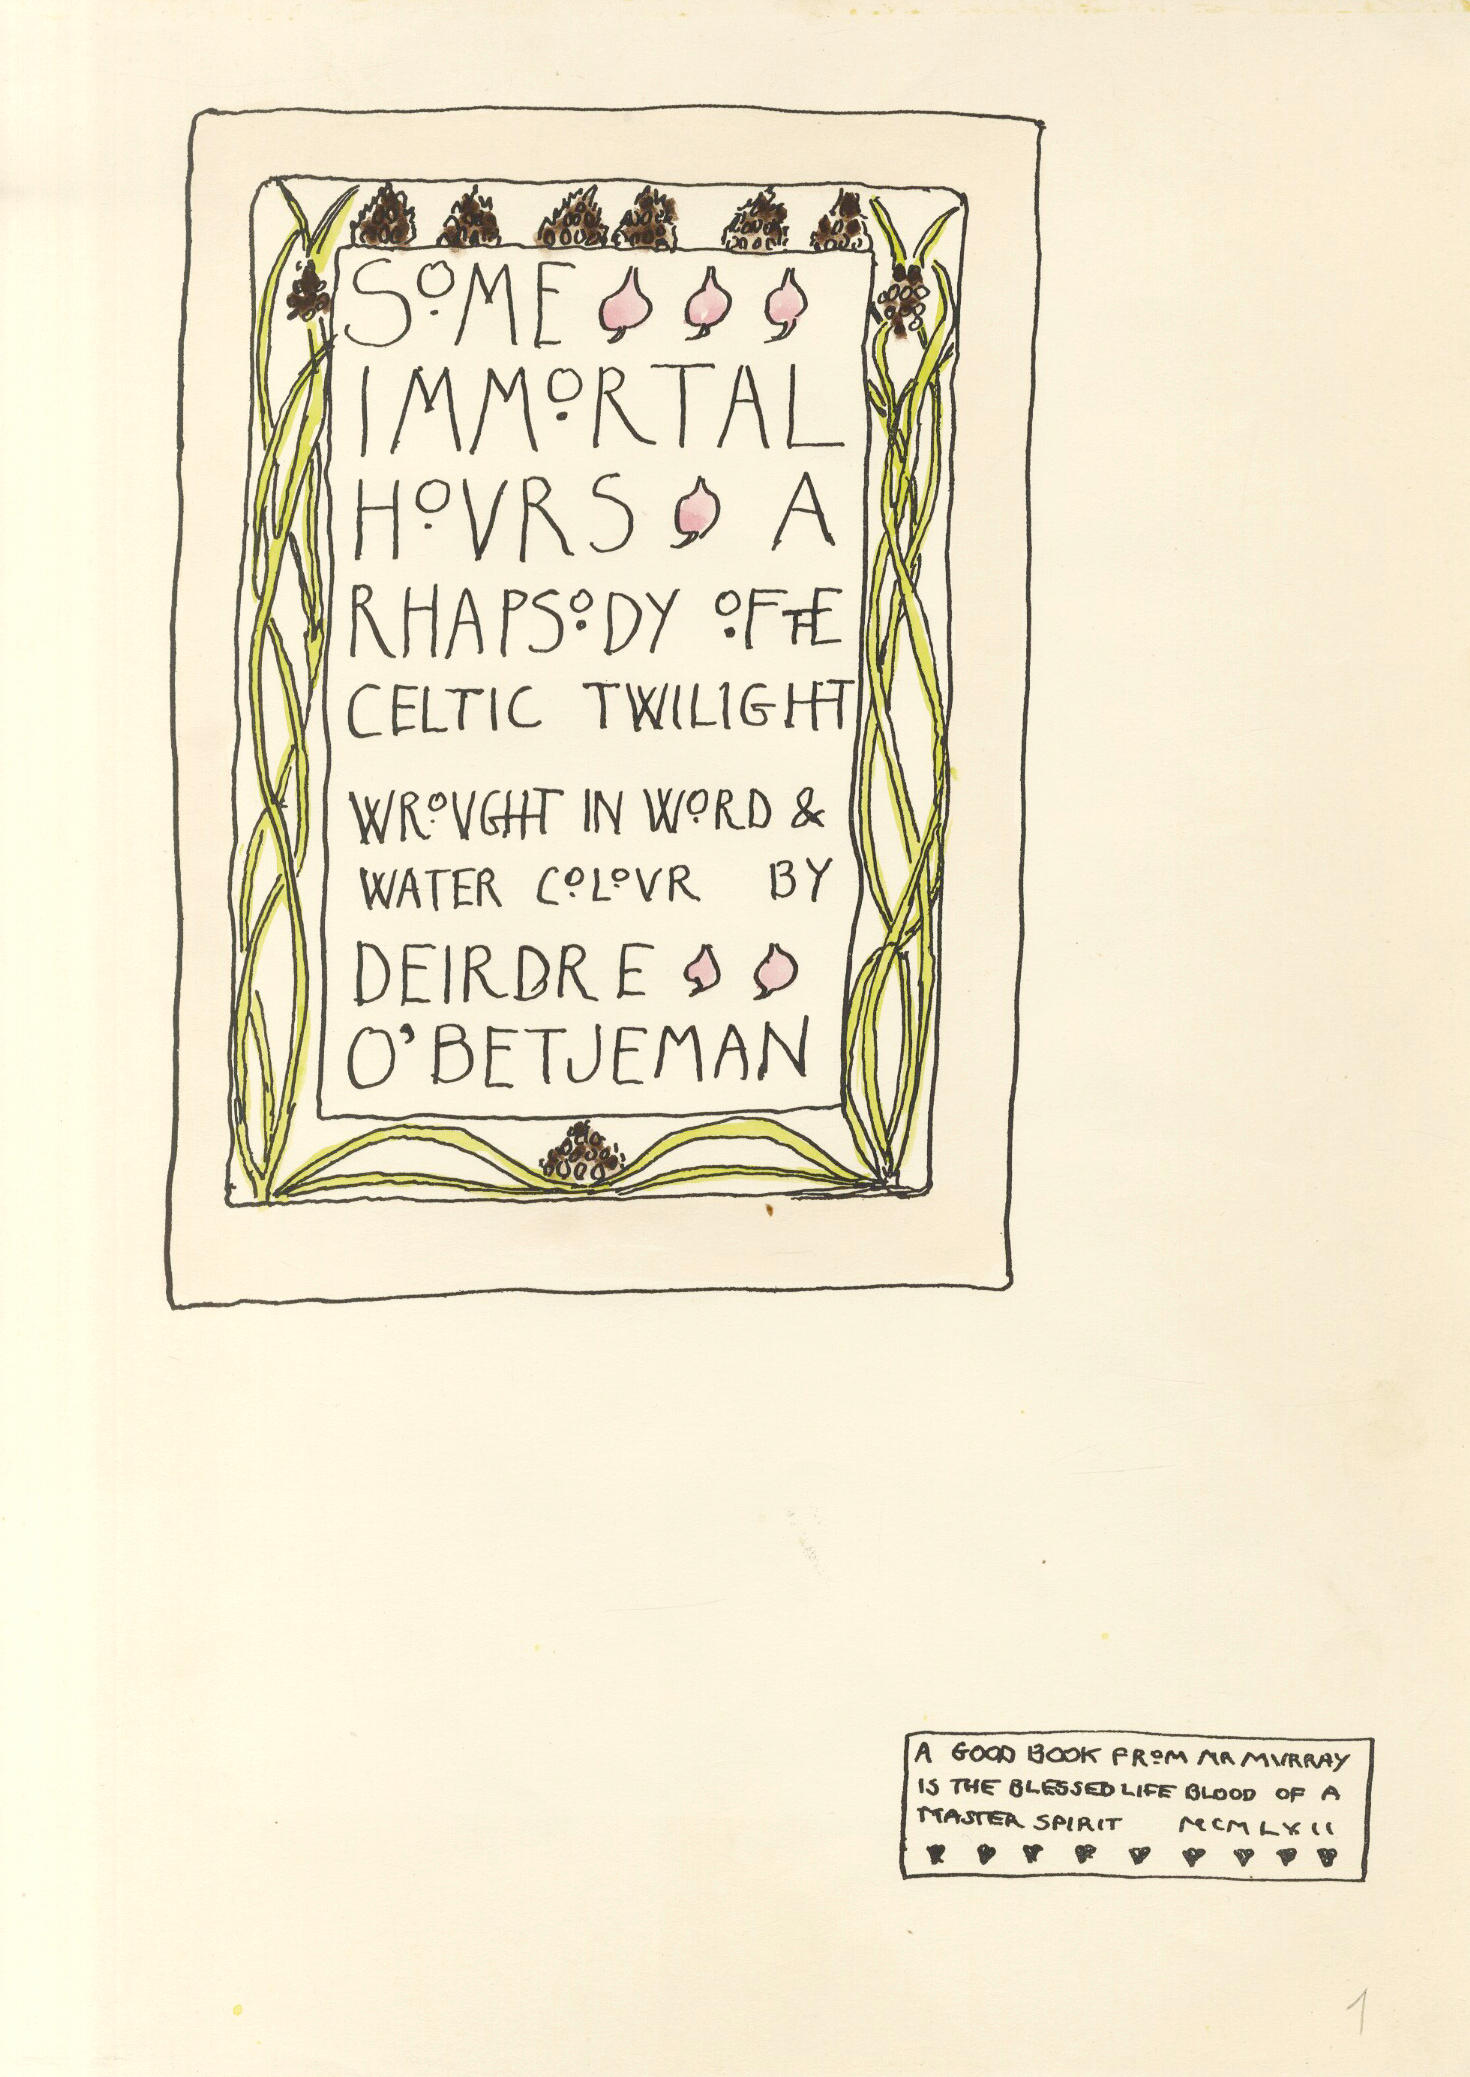 SOME
IMMORTAL
HOVRS A
RHAPSODY OF THE
CELTIC TWILIGHT
WROVGHT IN WORD &
WATER COLOVR BY
DEIRDRE
O'BETJEMAN
A GOOD BOOK FROM MR MVRRAY
IS THE BLESSED LIFE BLOOD OF A
MASTER SPIRIT MCMLXII
1